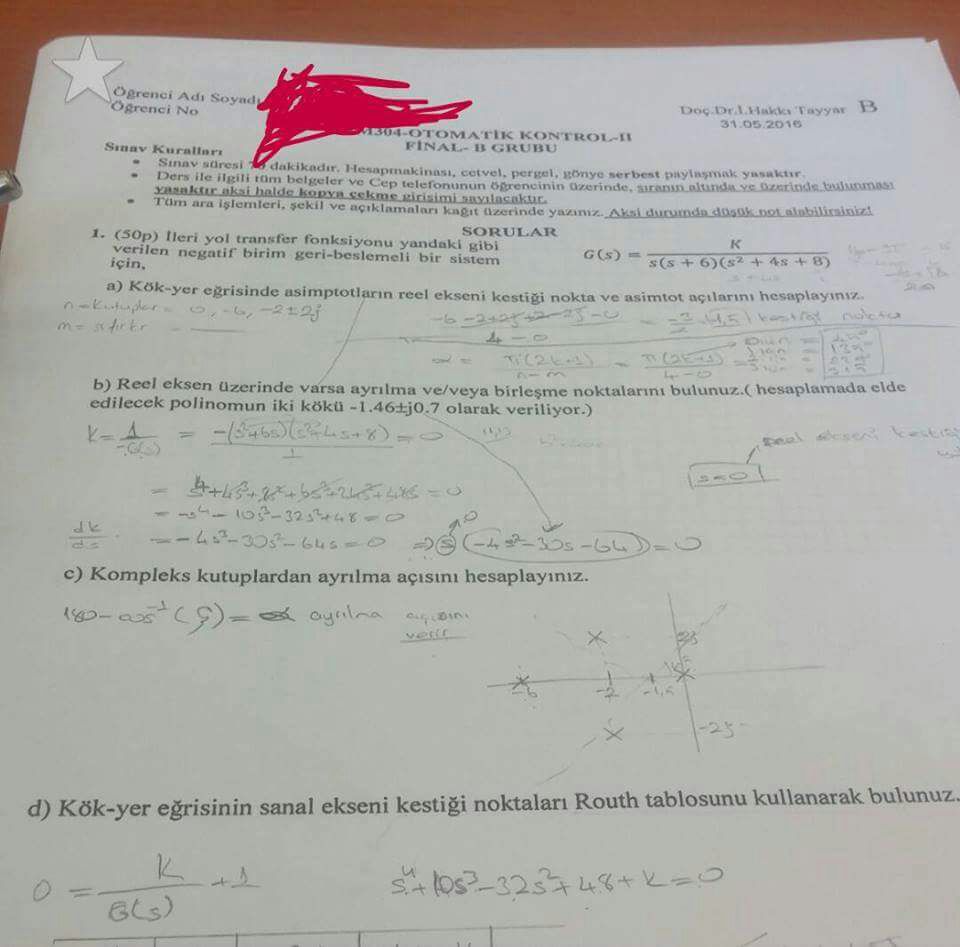 Öğrenci Adı Soyadı
Öğrenci No
Doç.Dr.İ.Hakkı Tayyar B
31.05.2016
M304-OTOMATİK KONTROL-II
FİNAL- B GRUBU
Sınav Kuralları
• Sınav süresi dakikadır. Hesapmakinası, cetvel, pergel, gönye serbest paylaşmak yasaktır.
• Ders ile ilgili tüm belgeler ve Cep telefonunun öğrencinin üzerinde, sıranın altında ve üzerinde bulunması
yasaktır aksi halde kopya çekme girişimi sayılacaktır.
• Tüm ara işlemleri, şekil ve açıklamaları kağıt üzerinde yazınız. Aksi durumda düşük not alabilirsiniz!
SORULAR
1. (50p) İleri yol transfer fonksiyonu yandaki gibi
verilen negatif birim geri-beslemeli bir sistem
için,
G(s) = K / s(s + 6)(s² + 4s + 8)
a) Kök-yer eğrisinde asimptotların reel ekseni kestiği nokta ve asimtot açılarını hesaplayınız.
n = kutuplar = 0, -6, -2±2j
m = sıfır
4-0
α = π(2k+1) / n-m = π(2k+1) / 4-0
b) Reel eksen üzerinde varsa ayrılma ve/veya birleşme noktalarını bulunuz.( hesaplamada elde
edilecek polinomun iki kökü -1.46±j0.7 olarak veriliyor.)
K = 1 / -G(s) = -(s²+6s)(s²+4s+8) / 1 = 0
reel ekseni kestiği
s=0
= s⁴+4s³+8s²+6s³+24s²+48s = 0
= -s⁴ - 10s³ - 32s² + 48 = 0
dk/ds = -4s³ - 30s² - 64s = 0 ⇒ s (-4s² - 30s - 64) = 0
c) Kompleks kutuplardan ayrılma açısını hesaplayınız.
180 - cos⁻¹(ζ) = α ayrılma açısını
verir
-6 -2 -1,5
-2j
d) Kök-yer eğrisinin sanal ekseni kestiği noktaları Routh tablosunu kullanarak bulunuz.
0 = K / G(s) + 1
s⁴ + 10s³ - 32s² + 48 + k = 0